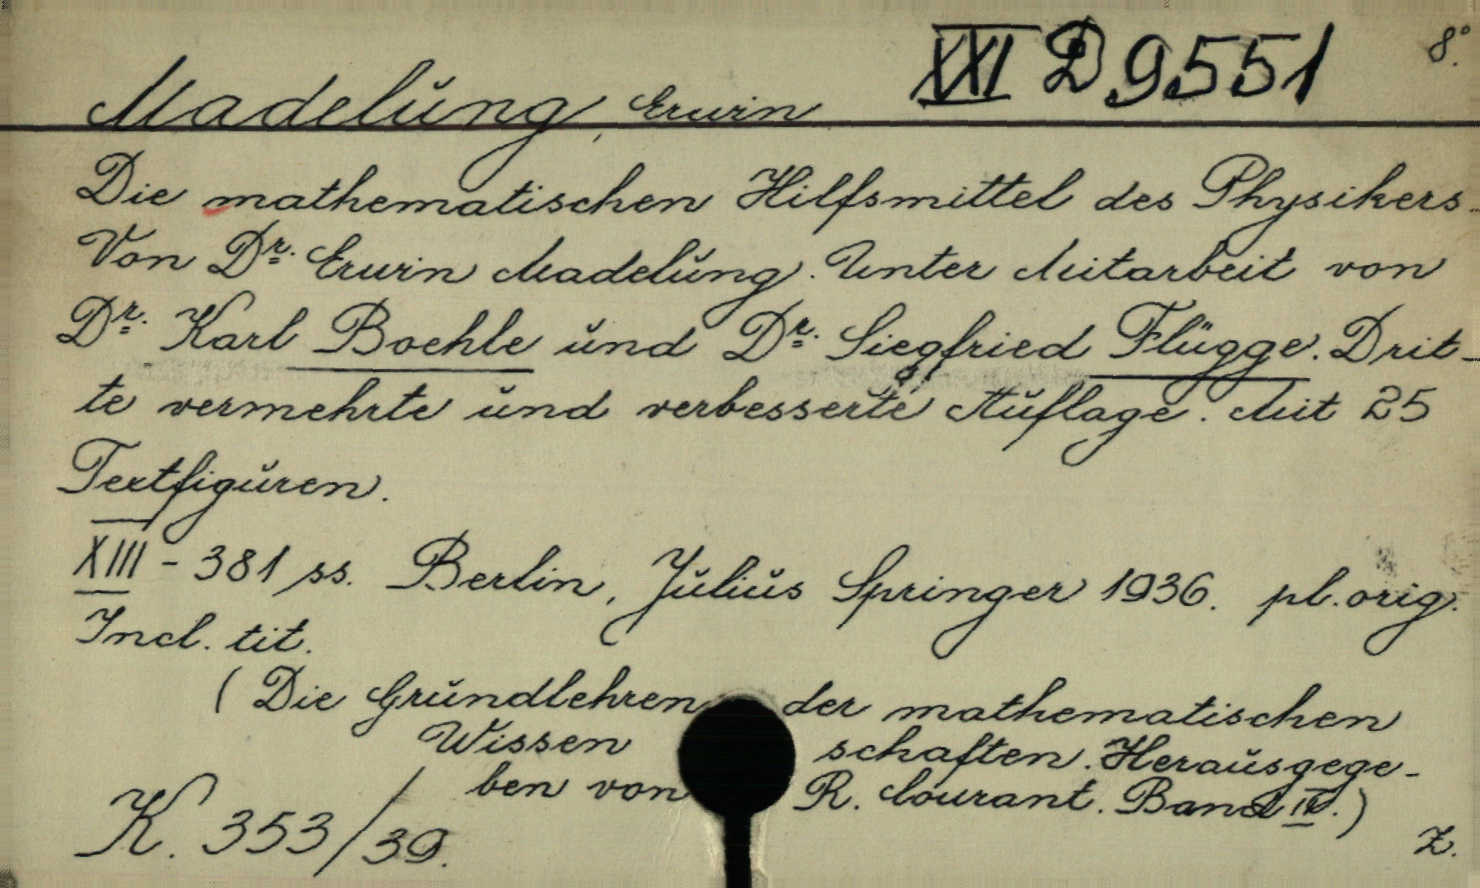 XXI D 9551 8°.
Madelŭng, Erwin
Die mathematischen Hilfsmittel des Physikers.
Von Dr. Erwin Madelŭng. Unter Mitarbeit von
Dr. Karl Boehle ŭnd Dr. Siegfried Flügge. Drit-
te vermehrte ŭnd verbesserte Aŭflage. Mit 25
Textfigŭren.
XIII - 381 ss. Berlin, Jŭliŭs Springer 1936. pl. orig.
Incl. tit.
(Die Grŭndlehren der mathematischen
Wissenschaften. Heraŭsgege-
ben von R. Coŭrant. Band IV.)
K. 353/39. Z.